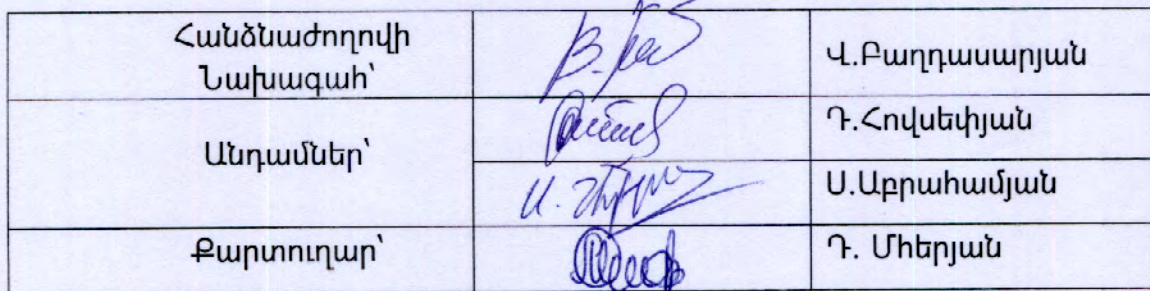 Հանձնաժողովի
Նախագահ՝
Վ.Բաղդասարյան
Անդամներ՝
Դ.Հովսեփյան
Ս.Աբրահամյան
Քարտուղար՝
Դ. Մհերյան